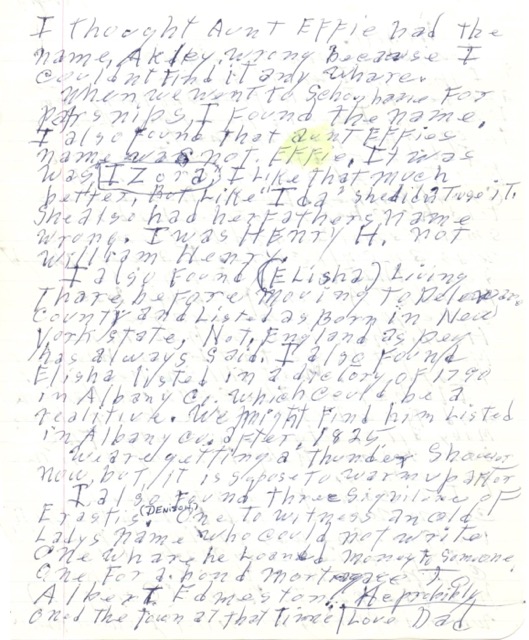 I thought Aunt Effie had the
name, Akley, wrong because I
couldnt find it any whare.
When we went to Schoharie For
Parsnips, I found the name.
I also found that aunt EFFies
name was not EFFie, It was
was IZora; I like that much
better, But like "Ida" she didnt use it.
She also had her Fathers name
wrong. I was HEnry H. not
William Henry.
I also Found (ELisha) Living
Thare, before moving to
County and Listed as Born in New
York state, Not, England as
has always said. I also Found
Elisha listed in a dictory, of 1790
in Albany Co. which could be a
realitive. We might Find him Listed
in Albany co. after, 1825
We are getting a thunder Shower
now, but, it is supose to warm up after
I also Found three Signiture of
Erastis, (DENISON) One To witness an old
Ladys name who could not write
One whare he loaned money to Someone
One For a bond Mortgage T
Albert Edmeston. He probibly
oned the town at that time / Love Dad